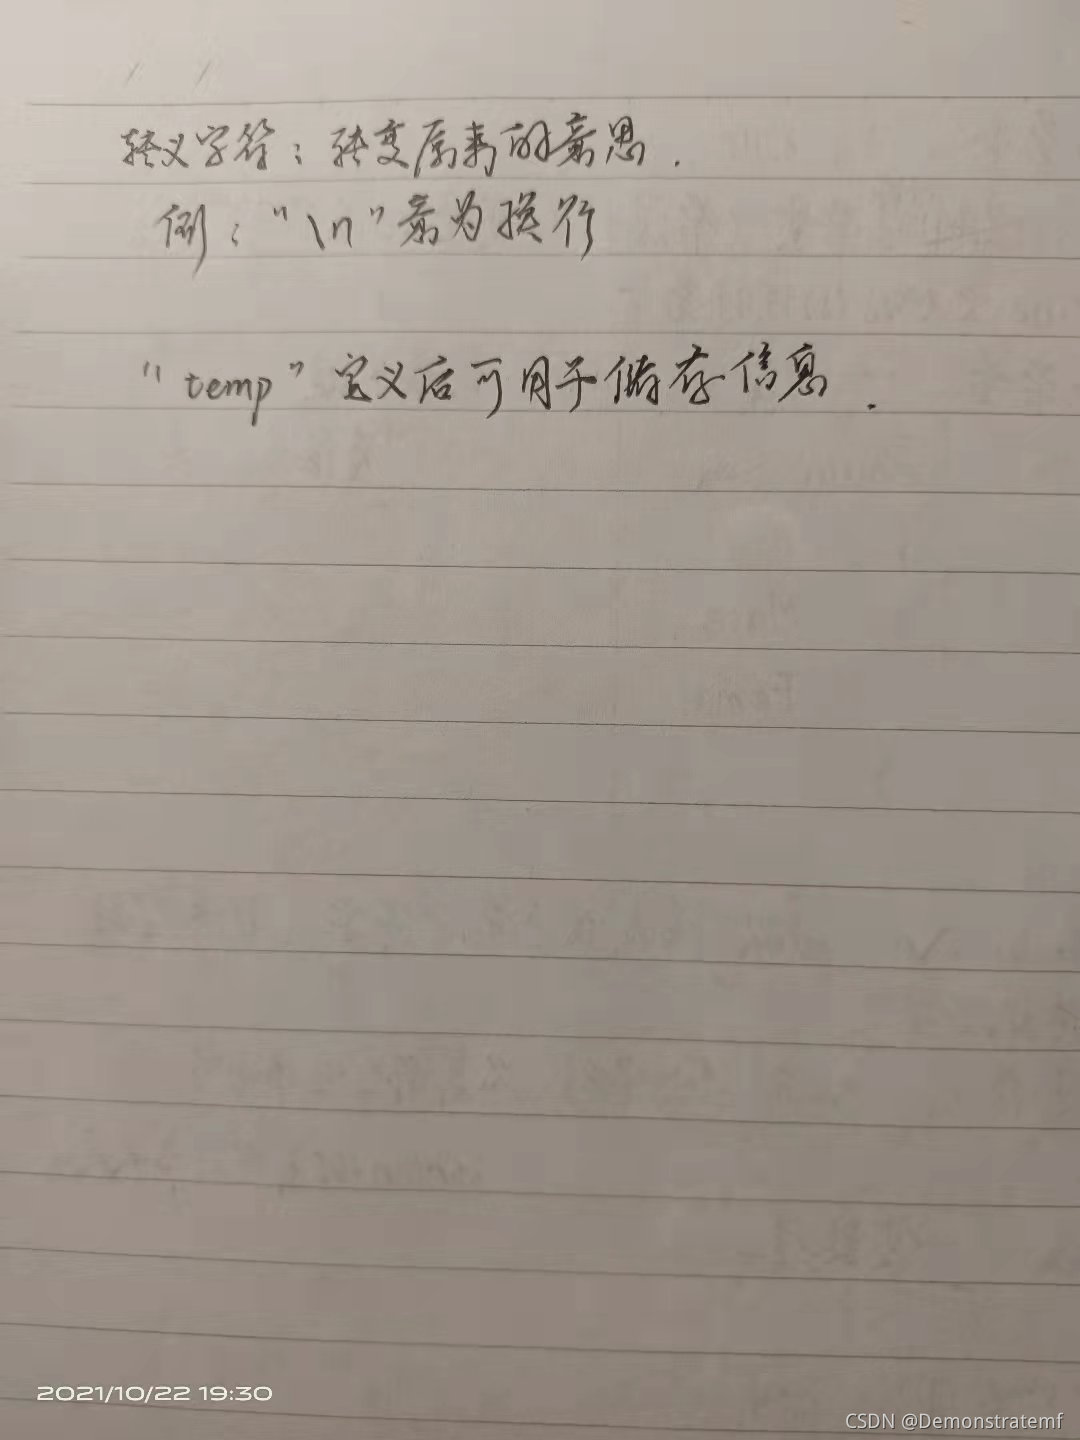 转义字符：转变原来的意思.
例："\n"意为换行
"temp"定义后可用于储存信息.
2021/10/22 19:30
CSDN @Demonstratemf